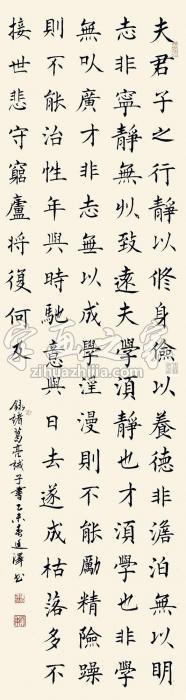 夫君子之行靜以修身儉以養德非澹泊無以明
志非寧靜無以致遠夫學須靜也才須學非學
無以廣才非志無以成學淫漫則不能勵精險躁
則不能治性年與時馳意與日去遂成枯落多不
接世悲守窮廬將復何及
錄諸葛亮誡子書乙未春
字画之家
zihuazhijia.com